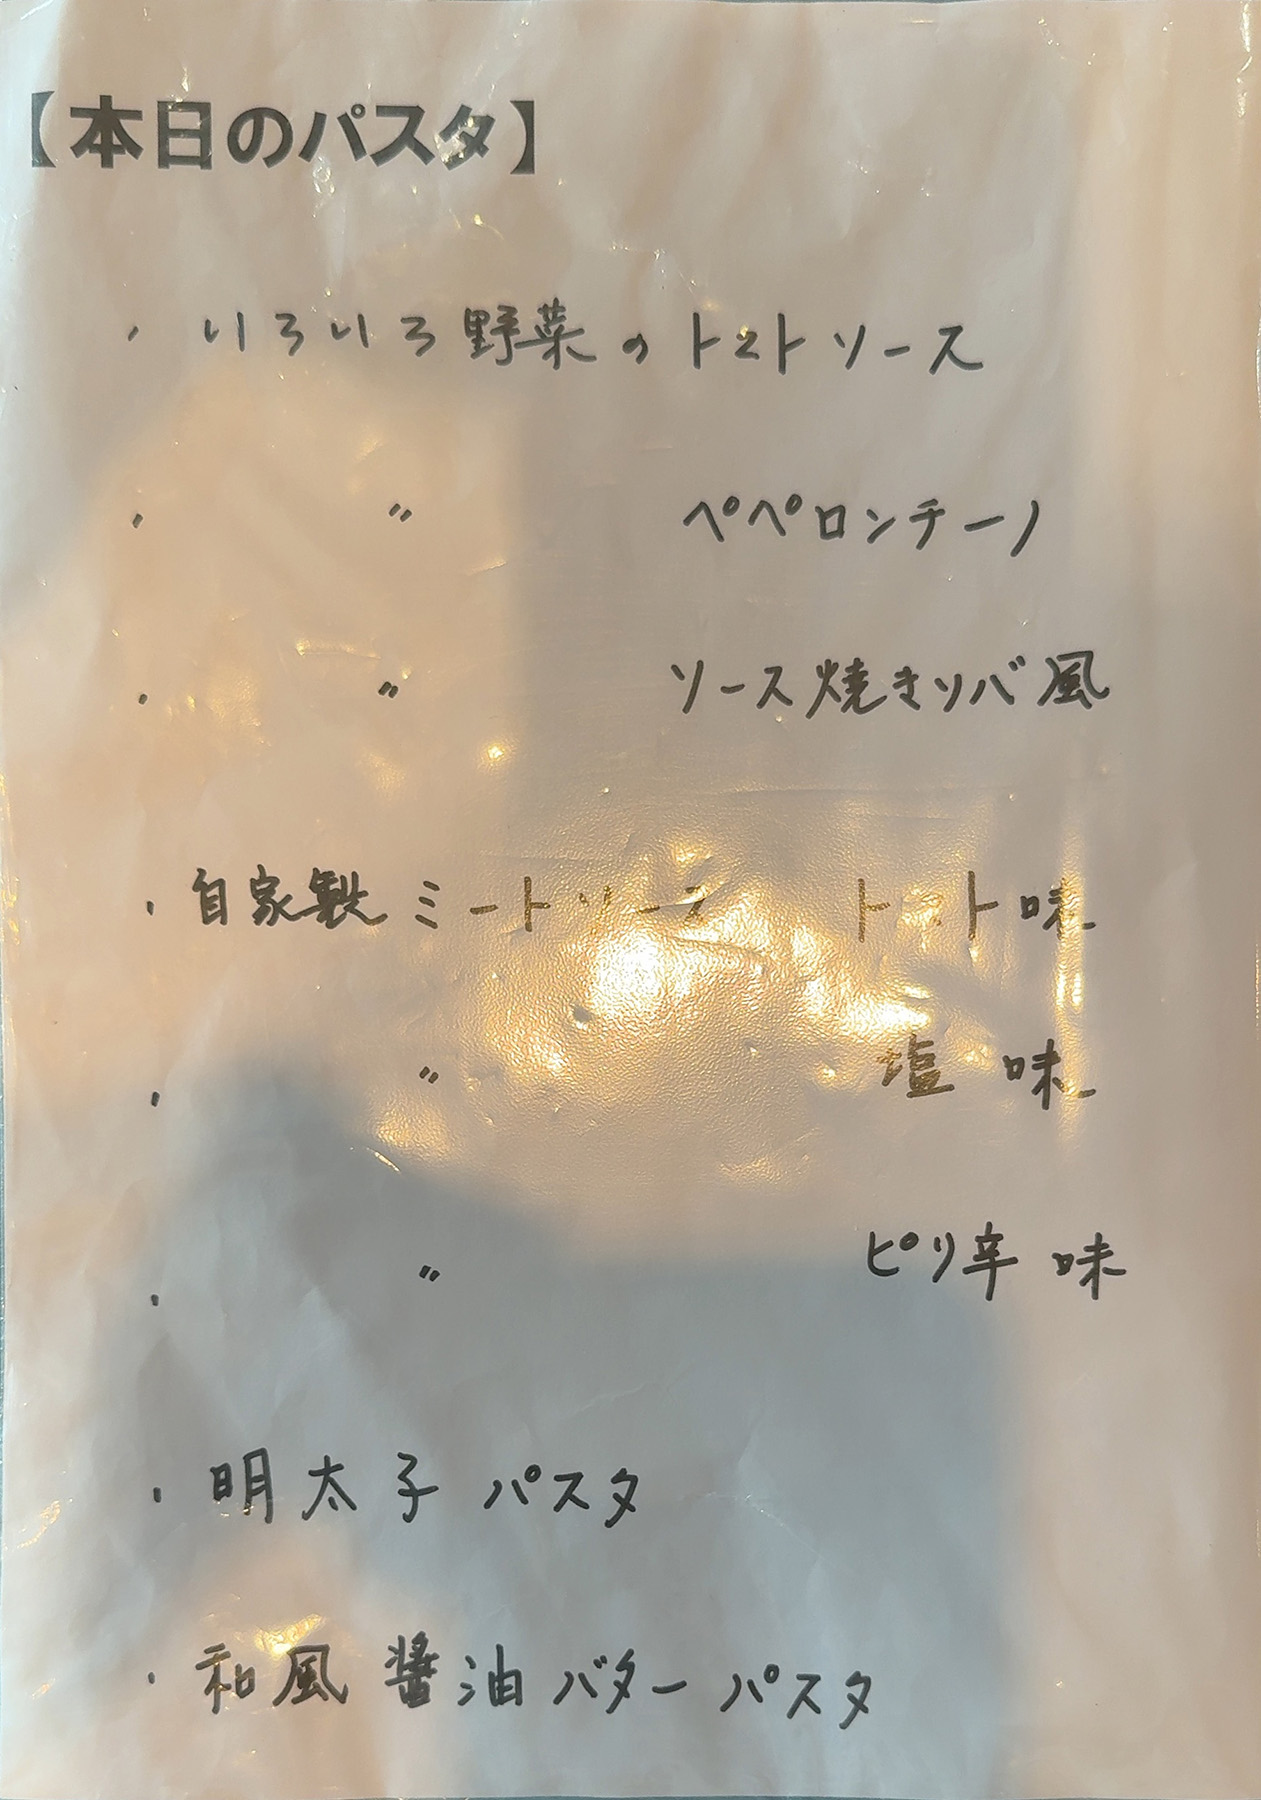 【本日のパスタ】
・いろいろ野菜のトマトソース
・〃 ペペロンチーノ
・〃 ソース焼きソバ風
・自家製ミートソース トマト味
・〃 塩味
・〃 ピリ辛味
・明太子パスタ
・和風醤油バターパスタ